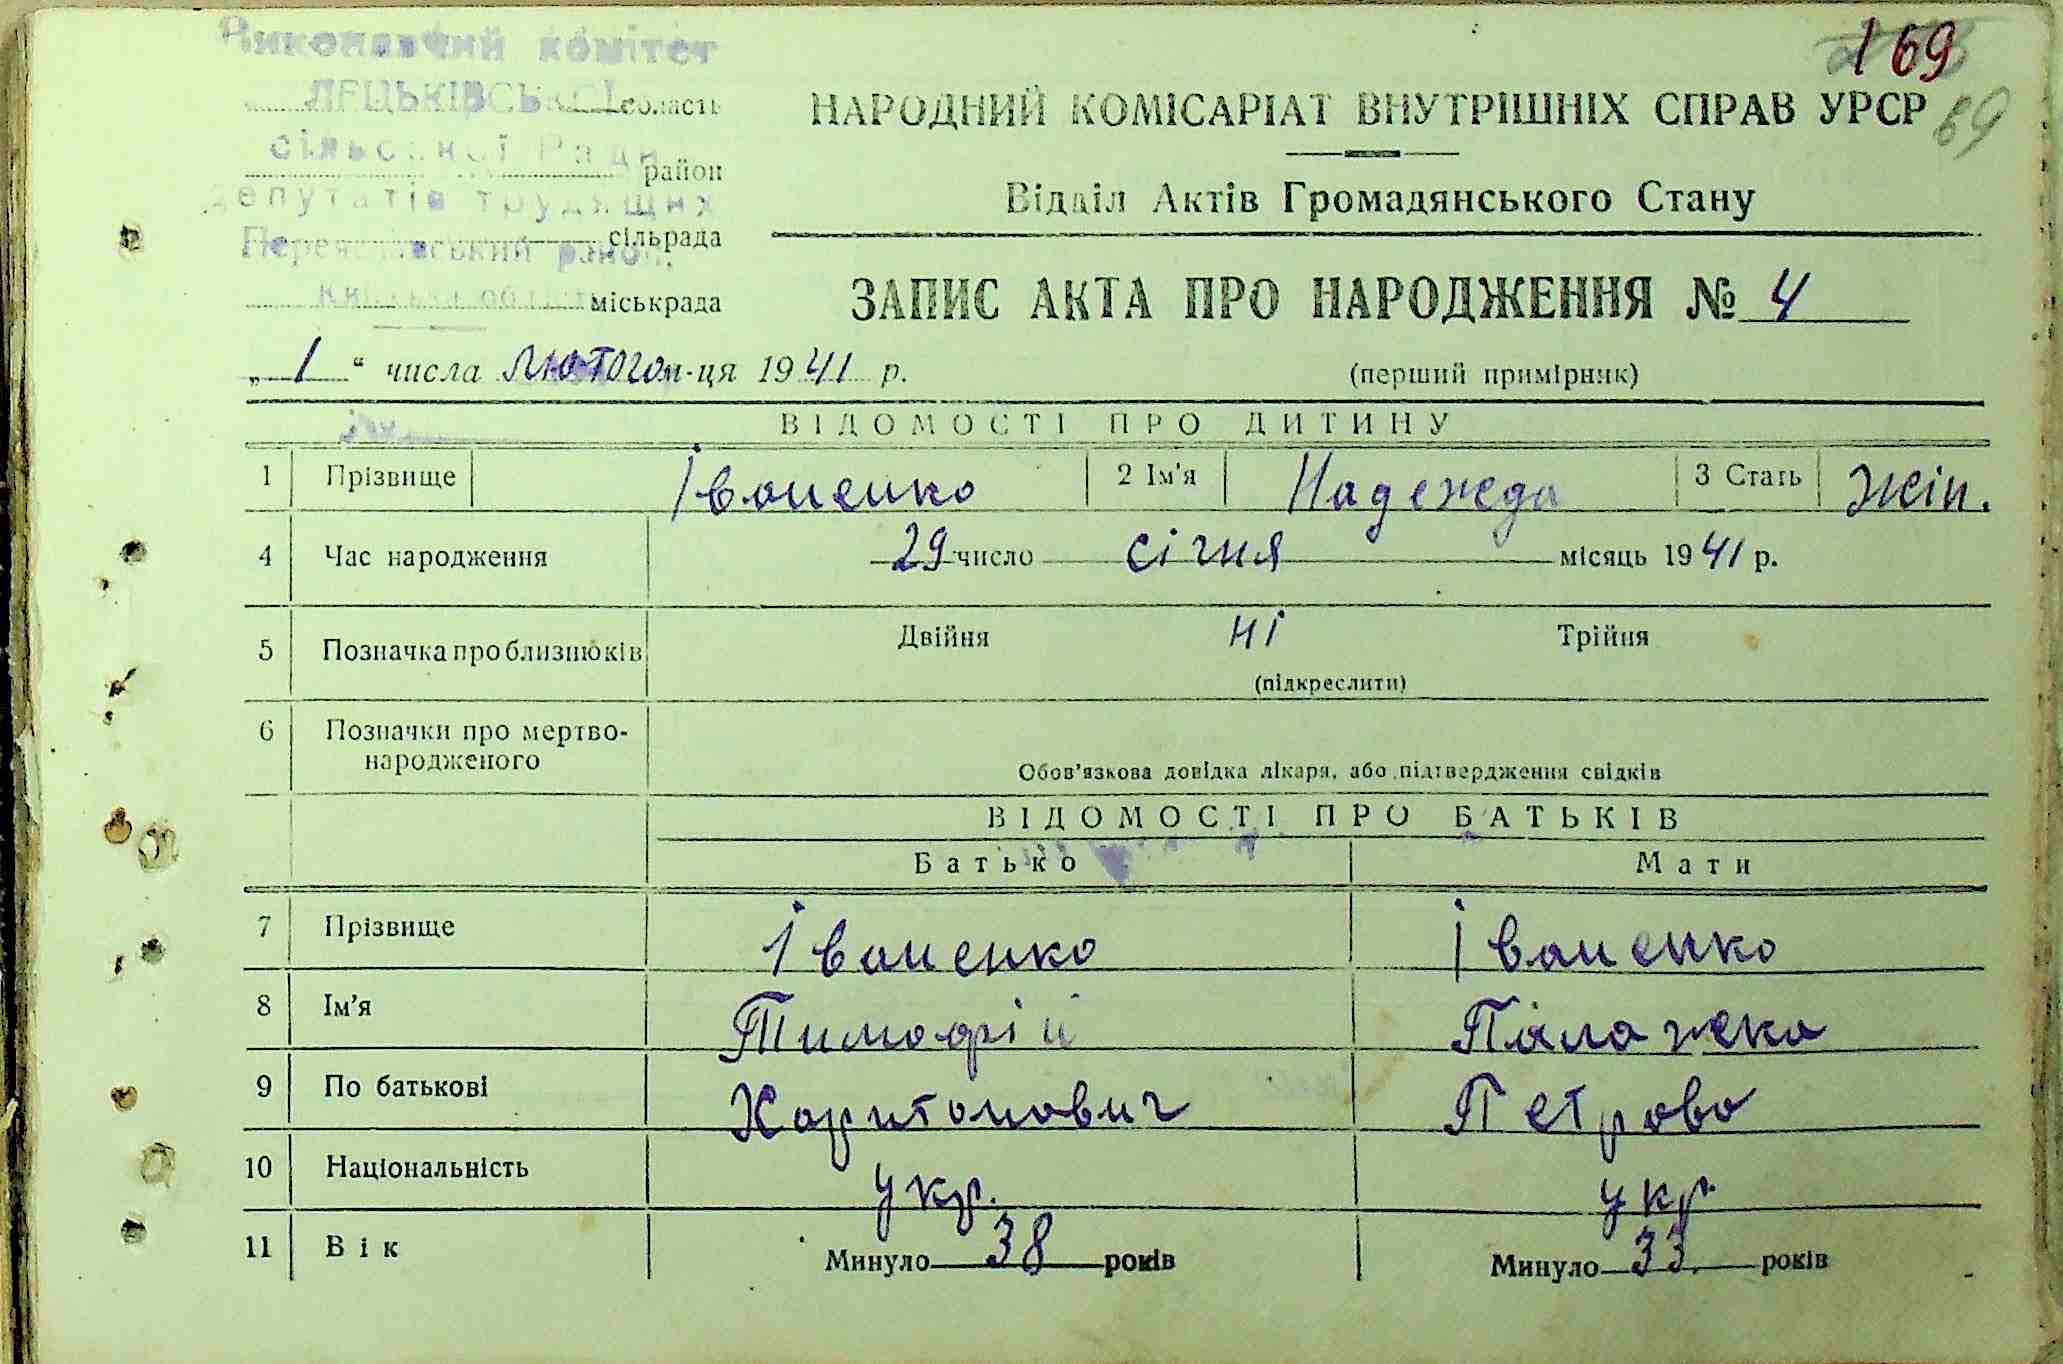 Виконавчий комітет
ЛЕЦЬКІВСЬКОЇ область
сільської Ради район
депутатів трудящих
Переяславський район, сільрада
Київська області міськрада
169
69
НАРОДНИЙ КОМІСАРІАТ ВНУТРІШНІХ СПРАВ УРСР
Відділ Актів Громадянського Стану
ЗАПИС АКТА ПРО НАРОДЖЕННЯ № 4
„1“ числа Лютого м-ця 1941 р.
(перший примірник)
ВІДОМОСТІ ПРО ДИТИНУ
1 Прізвище Іваненко 2 Ім'я Надежда 3 Стать жін.
4 Час народження 29 число січня місяць 1941 р.
5 Позначка про близнюків Двійня ні Трійня
(підкреслити)
6 Позначки про мертво-
народженого
Обов'язкова довідка лікаря, або підтвердження свідків
ВІДОМОСТІ ПРО БАТЬКІВ
Батько Мати
7 Прізвище Іваненко Іваненко
8 Ім'я Тимофій Палажка
9 По батькові Харитонович Петрова
10 Національність укр. укр.
11 Вік Минуло 38 років Минуло 33 років